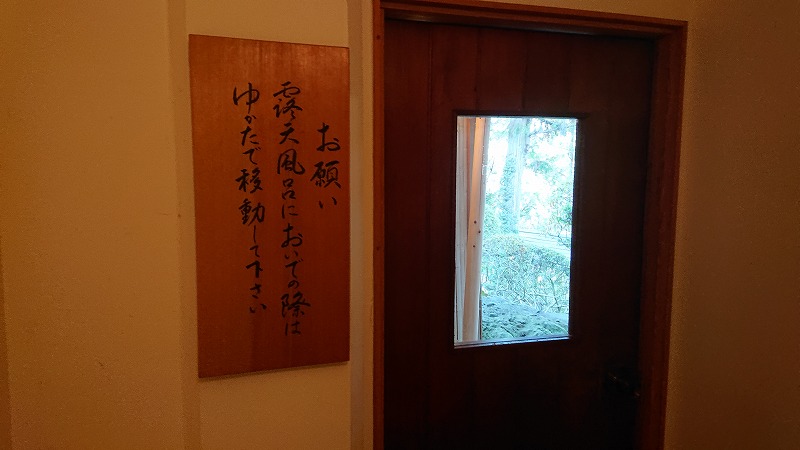 お願い
露天風呂においでの際は
ゆかたで移動して下さい